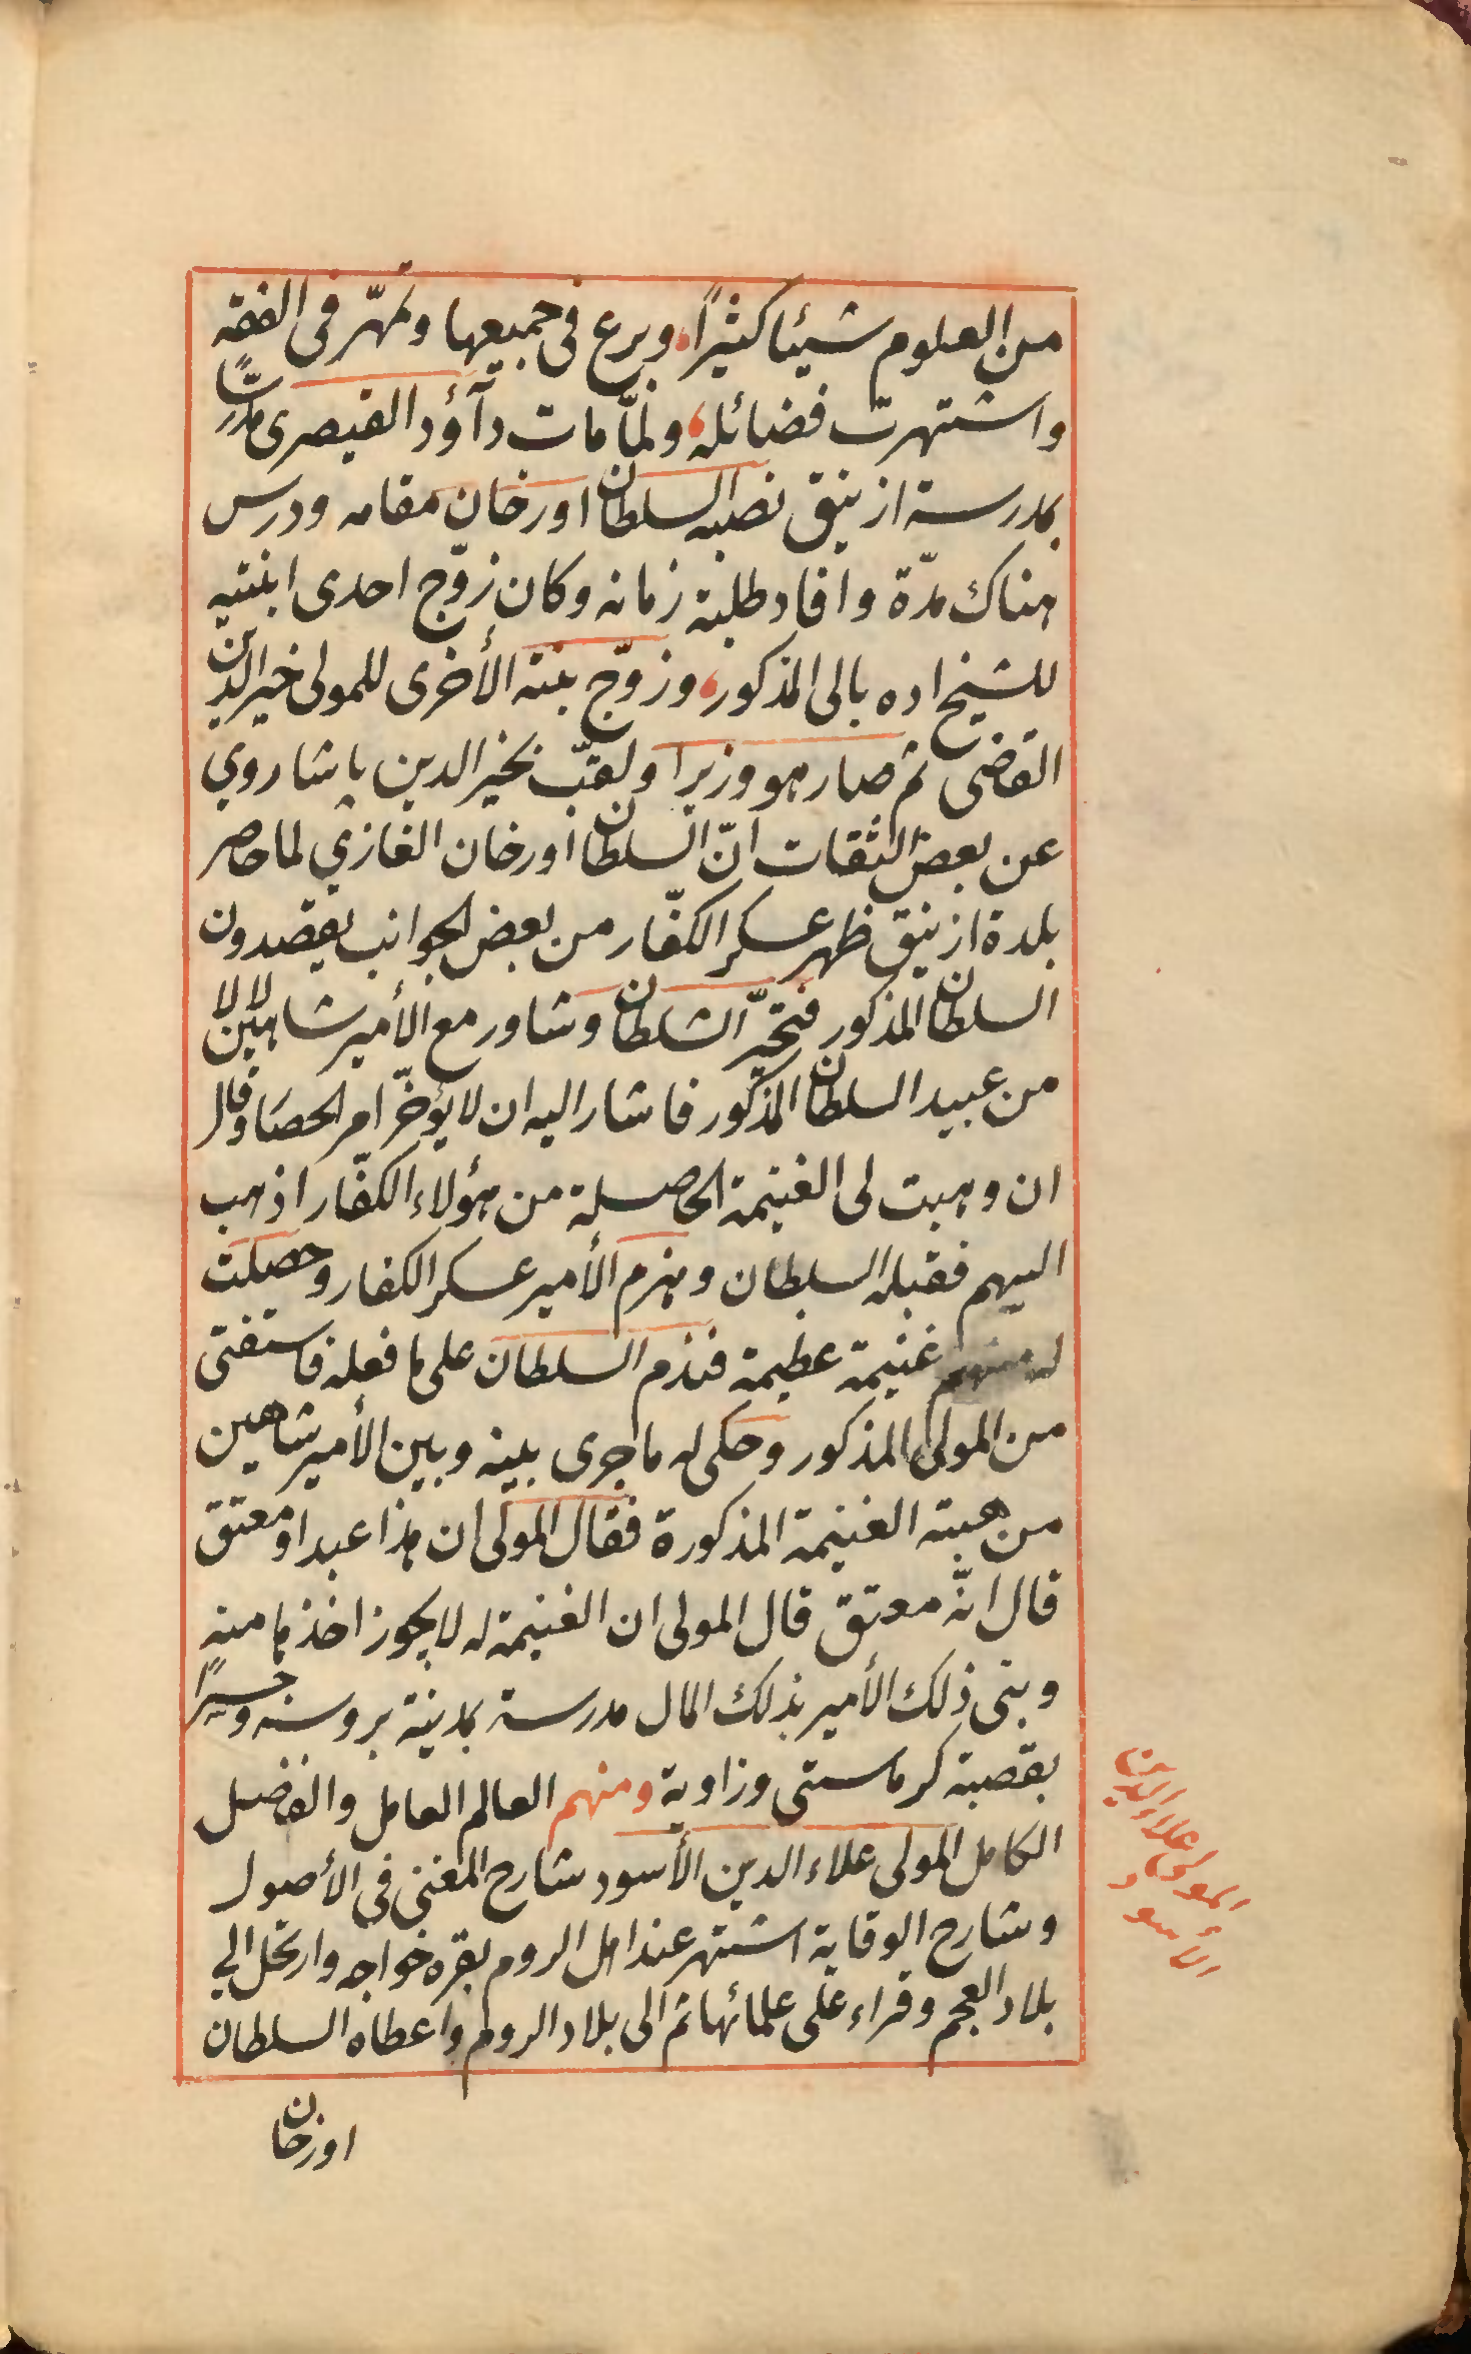 من العلوم شيئا كثيرًا، وبرع فى جميعها وتمهّر فى الفقه
واشتهرت فضائله، ولمّا مات دآؤد القيصرى مدرسًا
بمدرسة ازنيق نصبه السلطان اورخان مقامه ودرس
هناك مدّة وافاد طلبة زمانه وكان زوّج احدى ابنتيه
للشيخ اده بالى المذكور، وزوّج بنته الأخرى للمولى خير الدين
القاضى ثم صار هو وزيرا ولقّب بخير الدين پاشا روي
عن بعض الثقات انّ السلطان اورخان الغازي لما حاصر
بلدة ازنيق ظهر عسكر الكفّار من بعض الجوانب يقصدون
السلطان المذكور فتحيّر السّلطان وشاور مع الأمير شاهين لالا
من عبيد السلطان المذكور فاشار اليه ان لا يؤخّر امر الحصار وقال
ان وهبت لى الغنيمة الحاصلة من هؤلاء الكفّار اذهب
اليهم فقبله السلطان وهزم الأمير عسكر الكفار وحصلت
له منهم غنيمة عظيمة فندم السلطان على ما فعله فاستفتى
من المولى المذكور وحكى له ما جرى بينه وبين الأمير شاهين
من هبته الغنيمة المذكورة فقال المولى ان هذا عبد او معتق
قال انّه معتق قال المولى ان الغنيمة له لا يجوز اخذها منه
وبنى ذلك الأمير بذلك المال مدرسة بمدينة بروسه وجسرًا
بقصبة كرماستى وزاوية ومنهم العالم العامل والفاضل
الكامل المولى علاء الدين الأسود شارح المغنى فى الأصول
وشارح الوقاية اشتهر عند اهل الروم بقره خواجه وارتحل الى
بلاد العجم وقراء على علمائها ثم الى بلاد الروم واعطاه السلطان
اورخان
المولى علاء الدين
الأسود